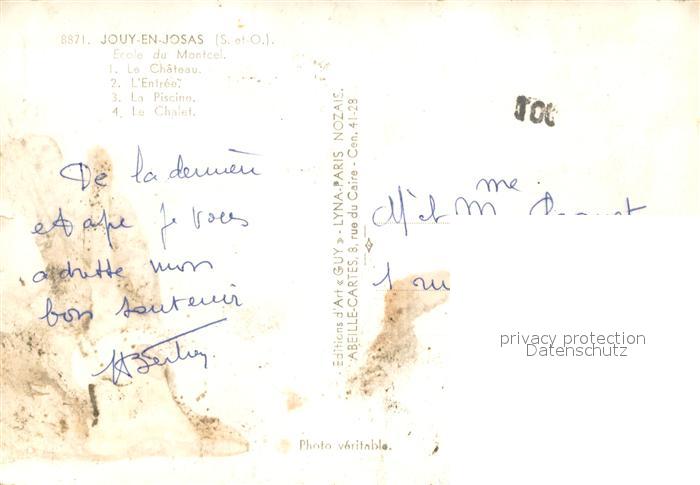 8871. JOUY-EN-JOSAS (S.-et-O.).
Ecole du Montcel.
1. Le Château.
2. L'Entrée.
3. La Piscine.
4. Le Chalet.
De la dernière
etape je vous
adresse mon
bon souvenir
Editions d'Art « GUY » - LYNA-PARIS NOZAIS.
ABEILLE-CARTES, 8, rue du Caire - Cen. 41-28
Mr et Mme
1 ru
privacy protection
Datenschutz
Photo véritable.